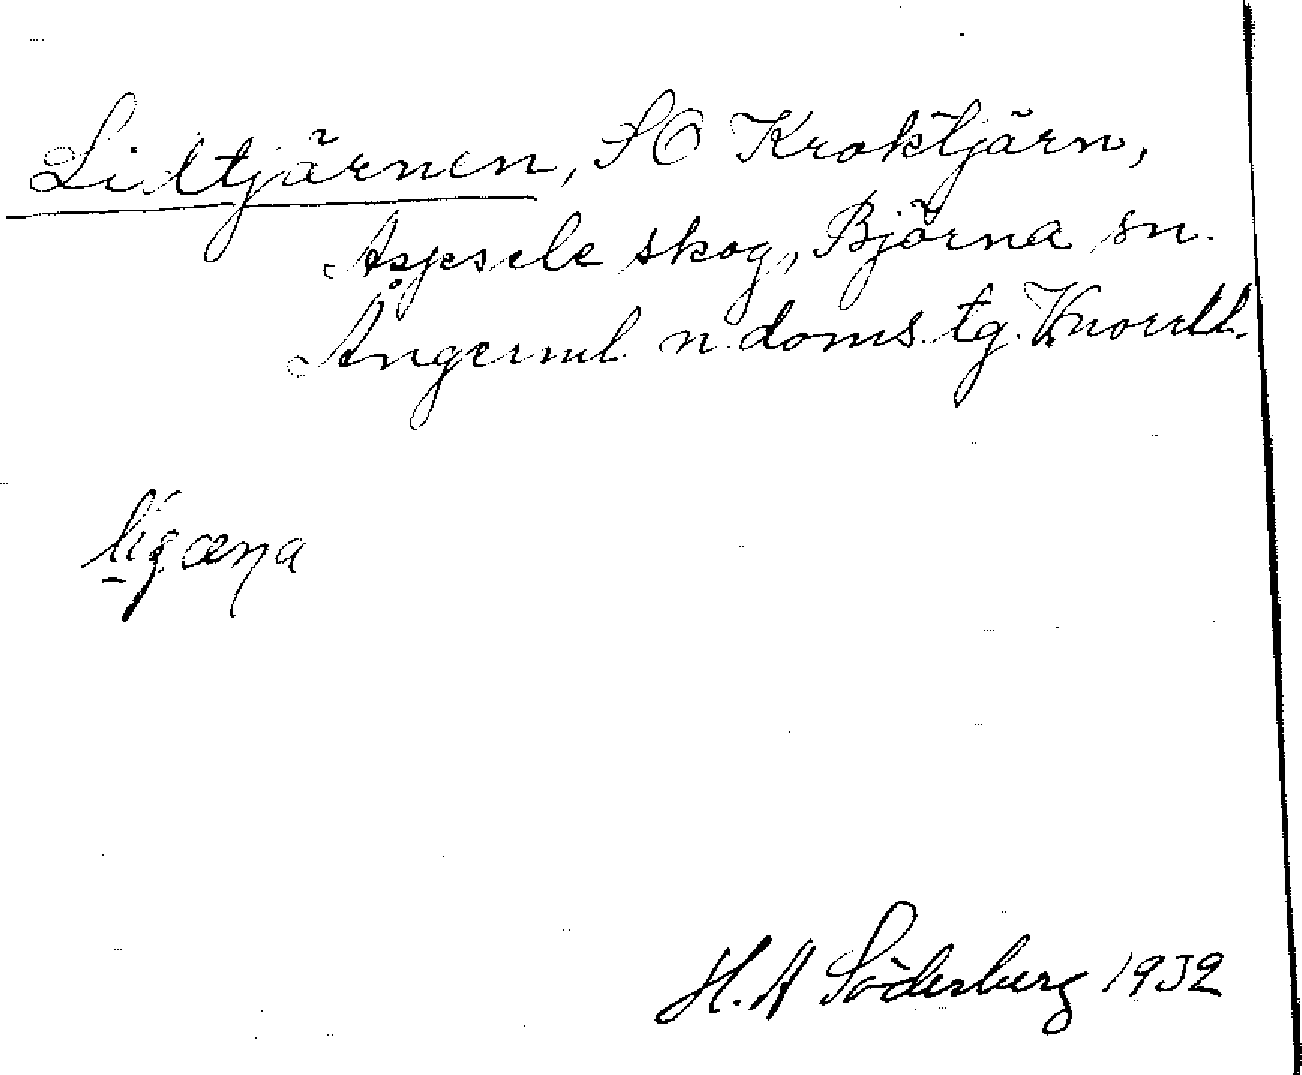 Liltjärnen, SO Kroktjärn,
Aspsele skog, Björna sn.
Ångerml. n. doms. tg. Vnorrld.
H. A Söderberg 1932